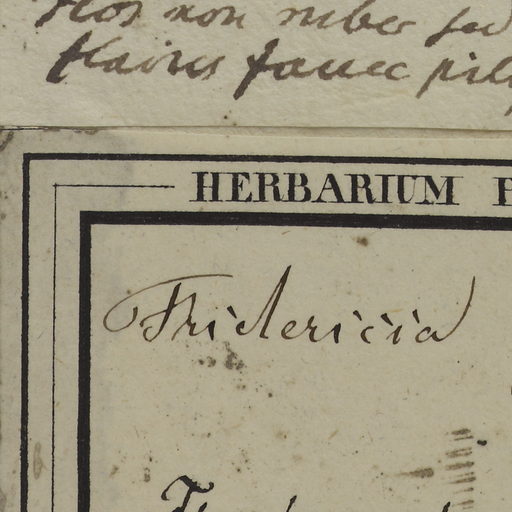 Flos non ruber sed
flavus fauce pil
HERBARIUM
Fridericia